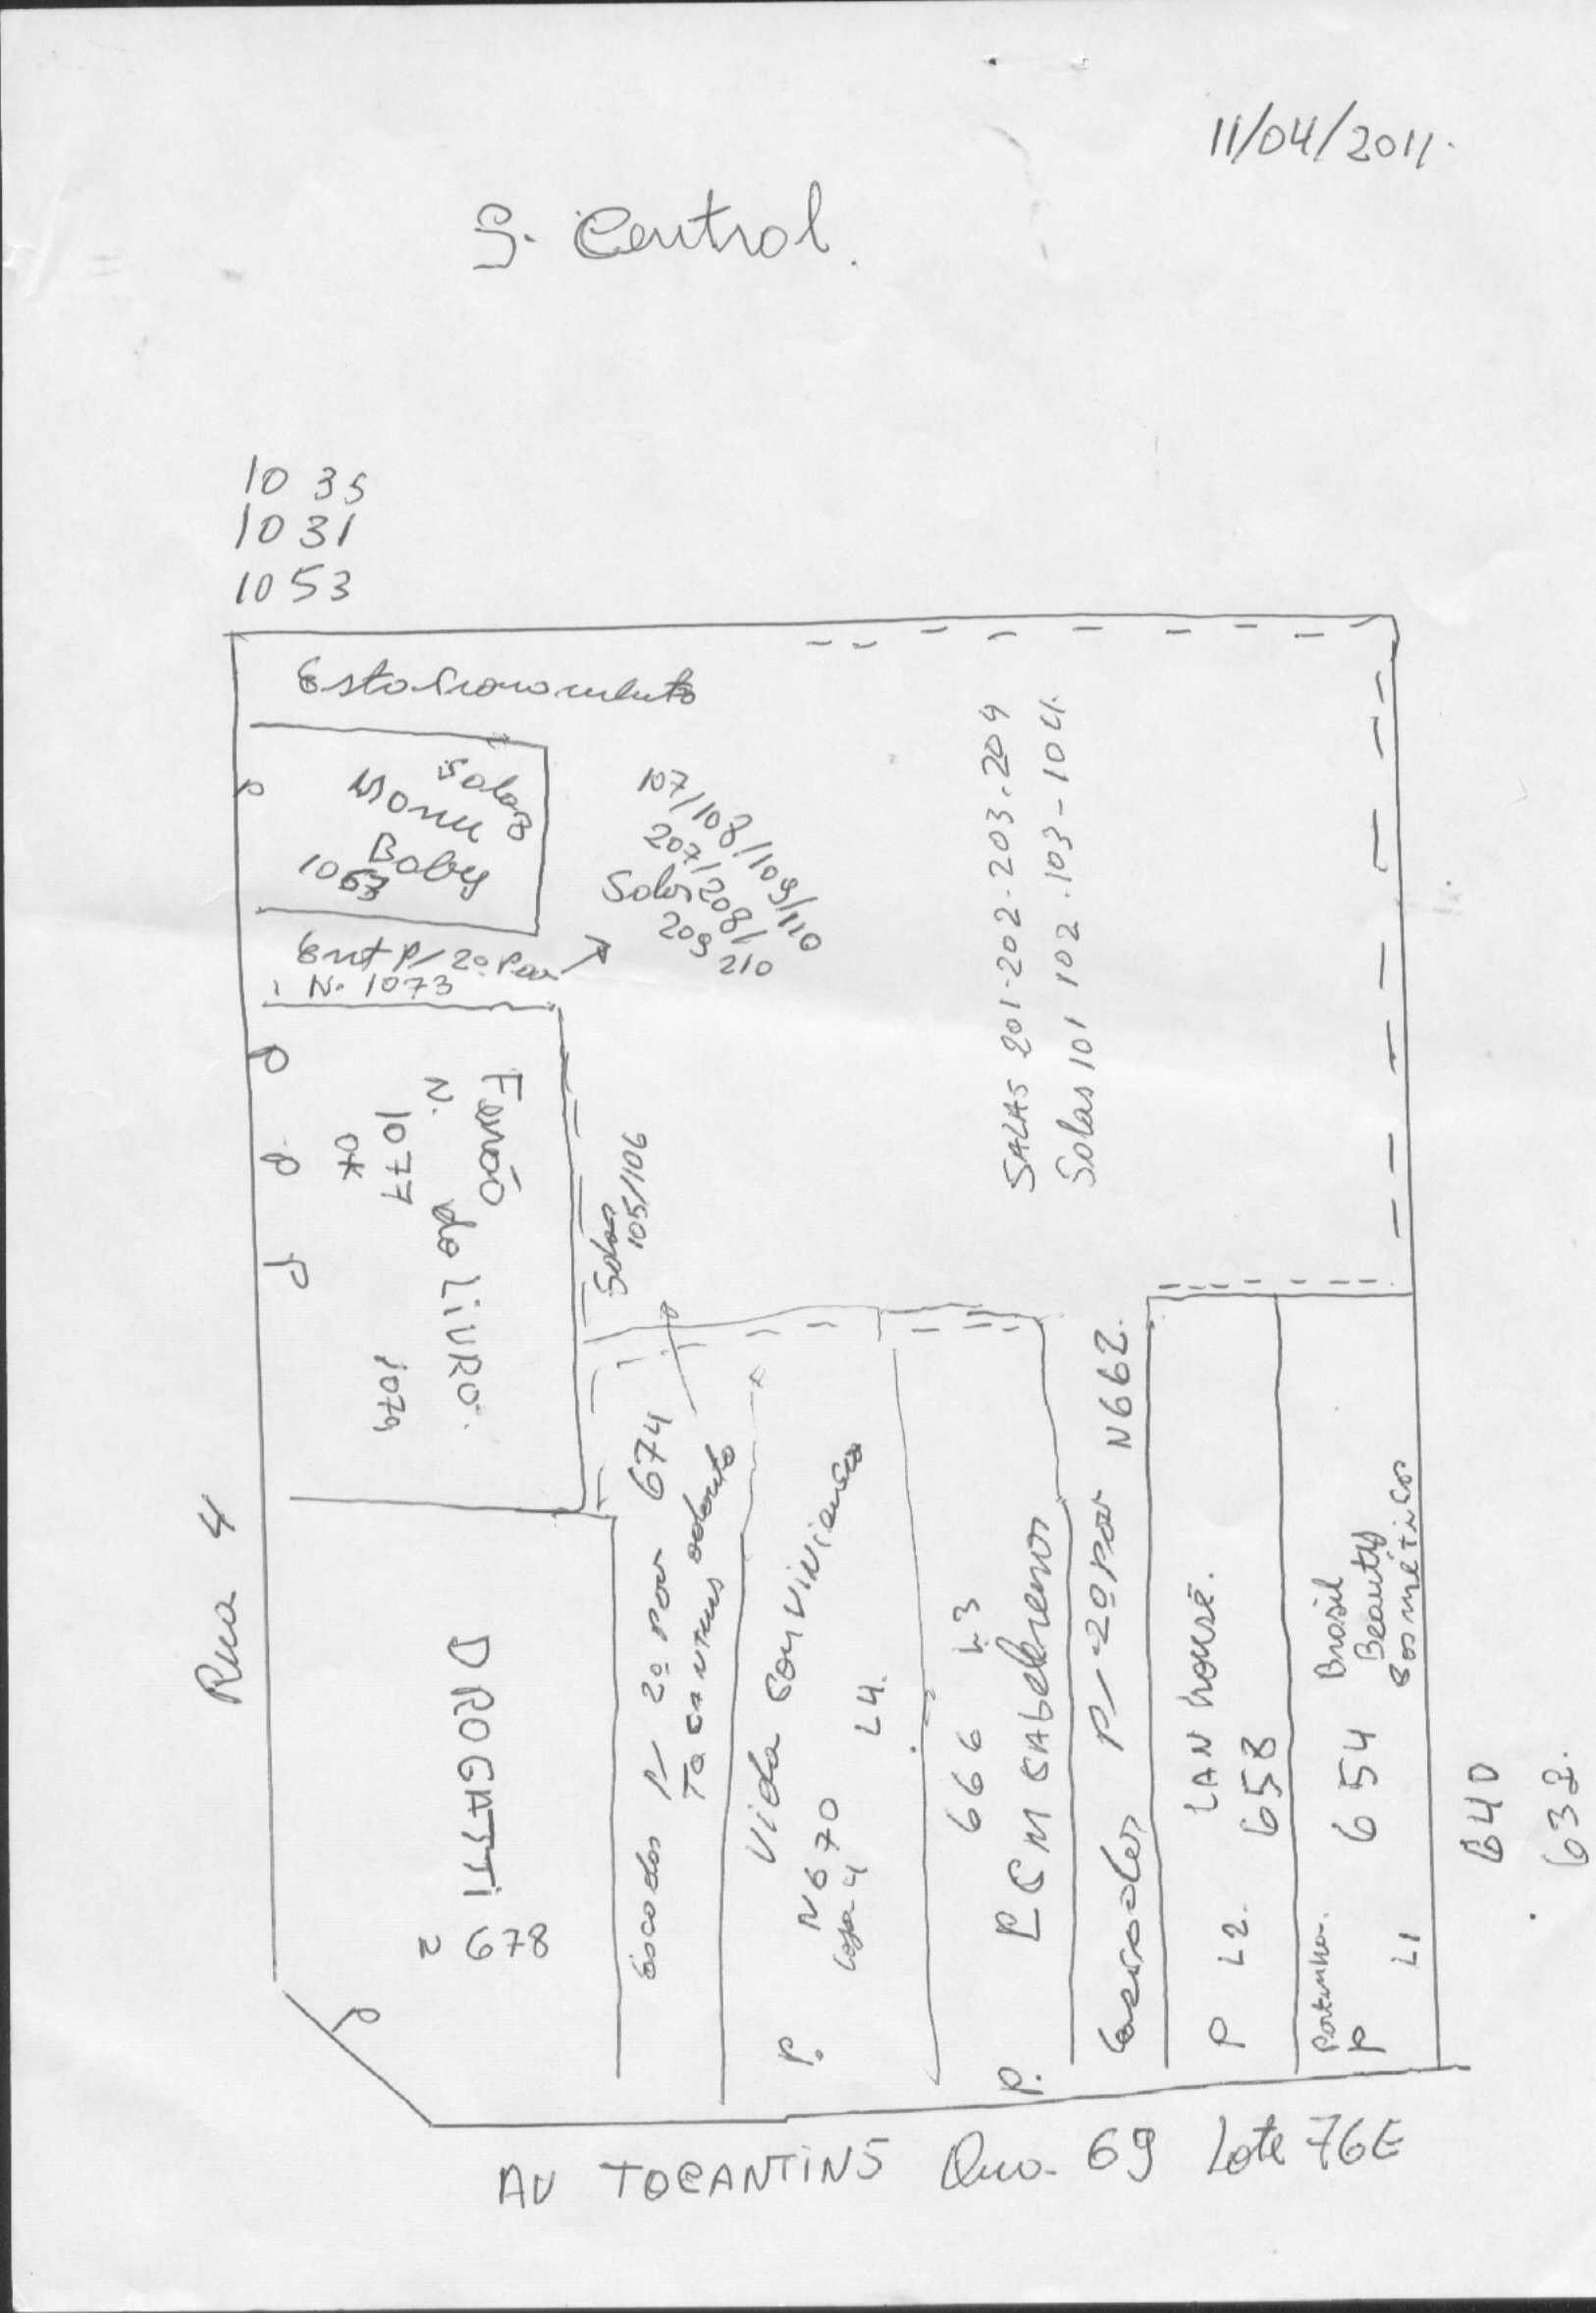 11/04/2011.
S. Central.
1035
1031
1053
Estacionamento
Salas
Monu
Baby
1063
107/108/109/110
207/208/
Salas
209
210
Ent P/ 2º Pav
N. 1073
SALAS 201-202-203-204
Salas 101 102 .103-104.
Fernão
do LiVRO.
N.
1077
1079
Salas
105/106
Rua 4
DROGASTTi
678
Escadas P/ 2º Pav 674
TOCANTINS odonto
Vida Conviniencia
N 670
Loja 4
L4.
P.
666 L3
P C M CABelereiros
P.
Corredor P/ 2º Pav N 662.
LAN house.
658
P L2.
Brasil
Beauty
Cosméticos
654
Portinha.
P
L1
640
632.
AV TOCANTINS Qua. 69 Lote 76E